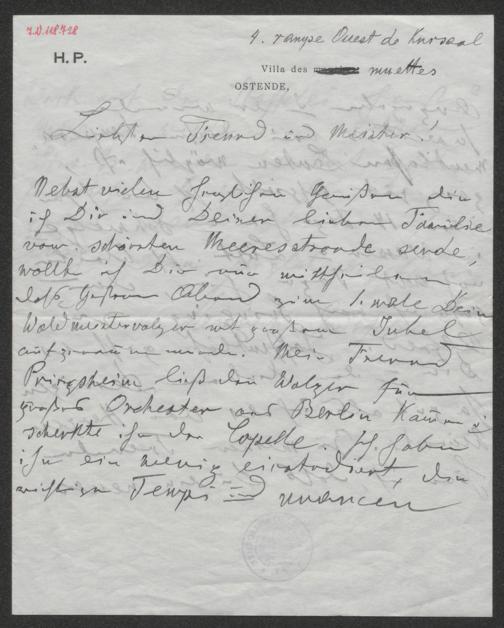 I.N. 118.728
4. rampe Ouest du Kursaal
H. P.
Villa des muettes
OSTENDE,
Liebster Freund und Meister!
Nebst vielen herzlichen Grüßen die
ich Dir und Deiner lieben Familie
vom schönsten Meeresstrande sende,
wollte ich Dir nur mittheilen
daß gestern Abend zum 1. male Dein
Waldmeisterwalzer mit großem Jubel
aufgenommen wurde. Mein Freund
Pringsheim ließ den Walzer für
großes Orchester aus Berlin kommen u
schenkte ihn der Capelle. Ich habe
ihn ein wenig einstudiert, die
richtigen Tempi und nuancen